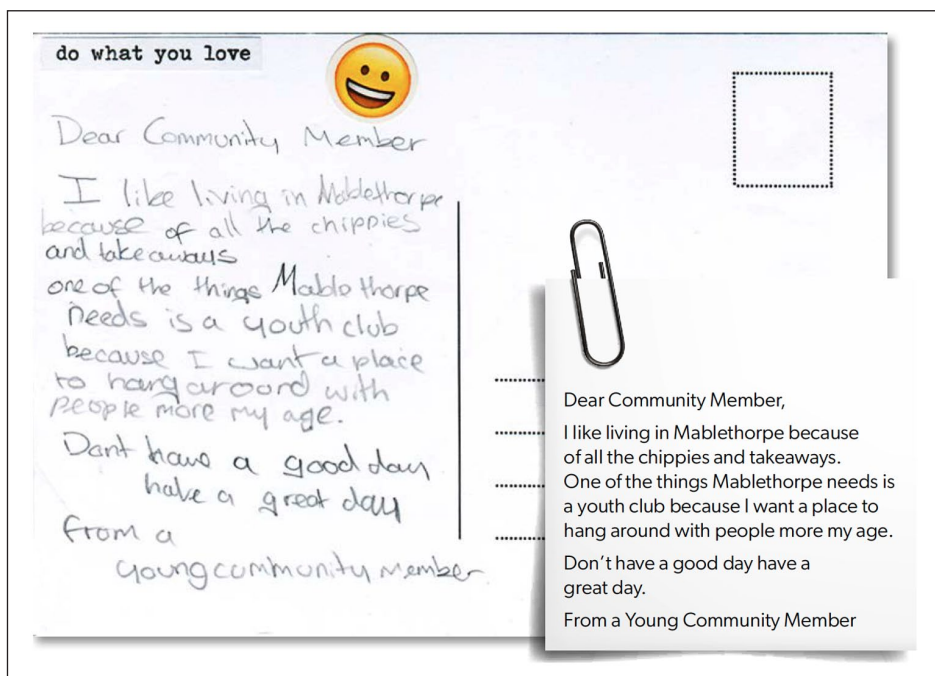 do what you love
Dear Community Member
I like living in Mablethorpe
because of all the chippies
and takeaways
one of the things Mablethorpe
needs is a youth club
because I want a place
to hang aroord with
people more my age.
Dant have a good day
have a great day
from a
young community member
Dear Community Member,
I like living in Mablethorpe because
of all the chippies and takeaways.
One of the things Mablethorpe needs is
a youth club because I want a place to
hang around with people more my age.
Don’t have a good day have a
great day.
From a Young Community Member